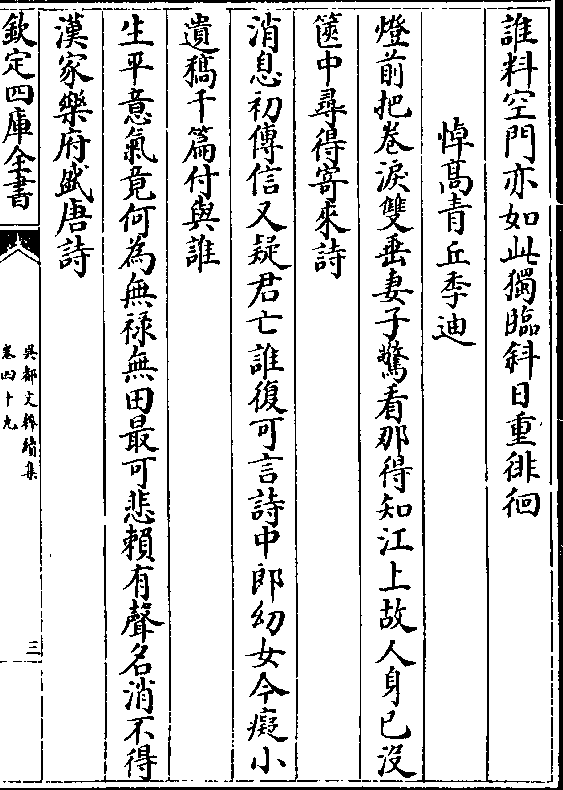 誰料空門亦如此獨臨斜日重徘徊
悼高青丘季迪
燈前把卷淚雙垂妻子驚看那得知江上故人身已沒
篋中尋得寄來詩
消息初傳信又疑君亡誰復可言詩中郎幼女今癡小
遺稿千篇付與誰
生平意氣竟何為無祿無田最可悲賴有聲名消不得
漢家樂府盛唐詩
欽定四庫全書
吳都文粹續集
卷四十九
三